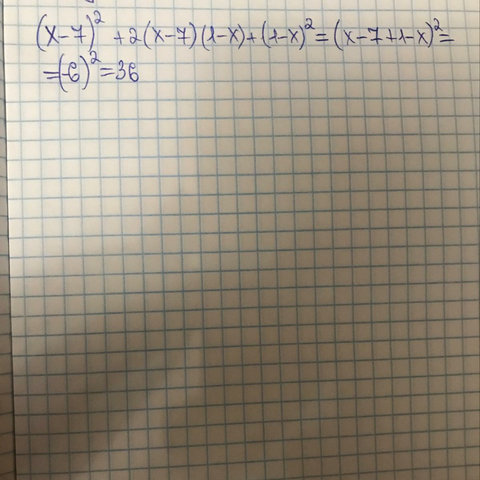 (x-7)² + 2(x-7)(1-x)+(1-x)² = (x-7+1-x)² =
=(-6)² = 36